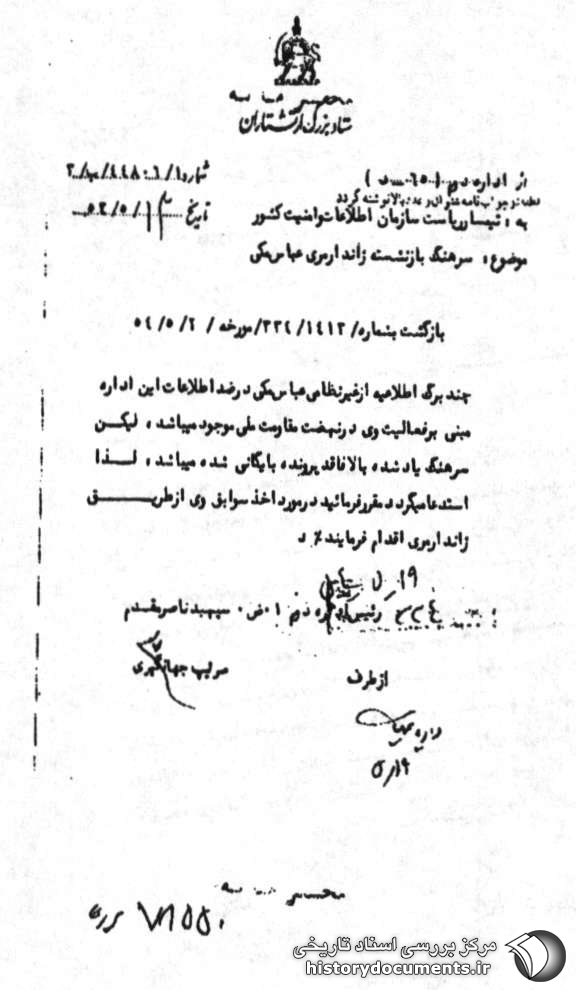 ستاد بزرگ ارتشتاران
از اداره دوم (
لطفا در جواب نامه عنوان و عدد بالا نوشته گردد
به : تیمسار ریاست سازمان اطلاعات و امنیت کشور
موضوع : سرهنگ بازنشسته ژاندارمری عباس مکی
شماره
تاریخ
بازگشت بشماره / ۳۳۲/۱۴۱۳ مورخه / ۵۴/۵/۲
چند برگ اطلاعیه از غیرنظامی عباس مکی در ضد اطلاعات این اداره
مبنی بر فعالیت وی در نهضت مقاومت ملی موجود میباشد ، لیکن
سرهنگ یاد شده بالا فاقد پرونده بایگانی شده میباشد ، لذا
استدعا میگردد مقرر فرمائید در مورد اخذ سوابق وی از طریق
ژاندارمری اقدام فرمایند٪ د
۱۹
رئیس اداره دوم سپهبد ناصر مقدم
از طرف
سرتیپ جهانگیری
۱۹/۵
۷۸۵۵۰
مرکز بررسی اسناد تاریخی
historydocuments.ir